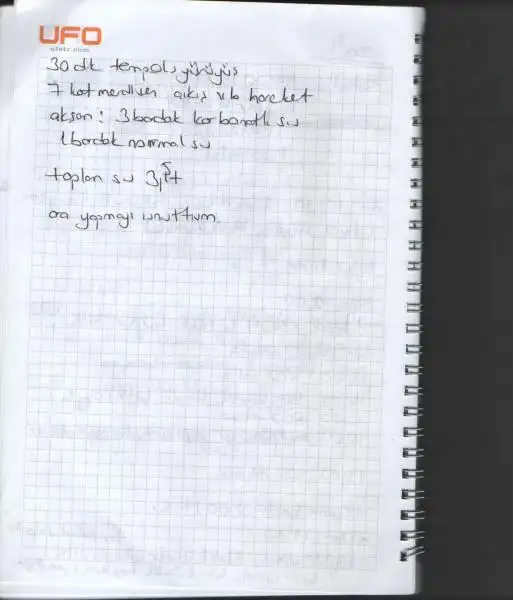 UFO
ufotr.com
30 dk tempolu yürüyüş
7 kat merdiven çıkış vb hareket
akşam: 3 bardak karbonatlı su
1 bardak normal su
toplam su 3 lt
ara yapmayı unuttum.